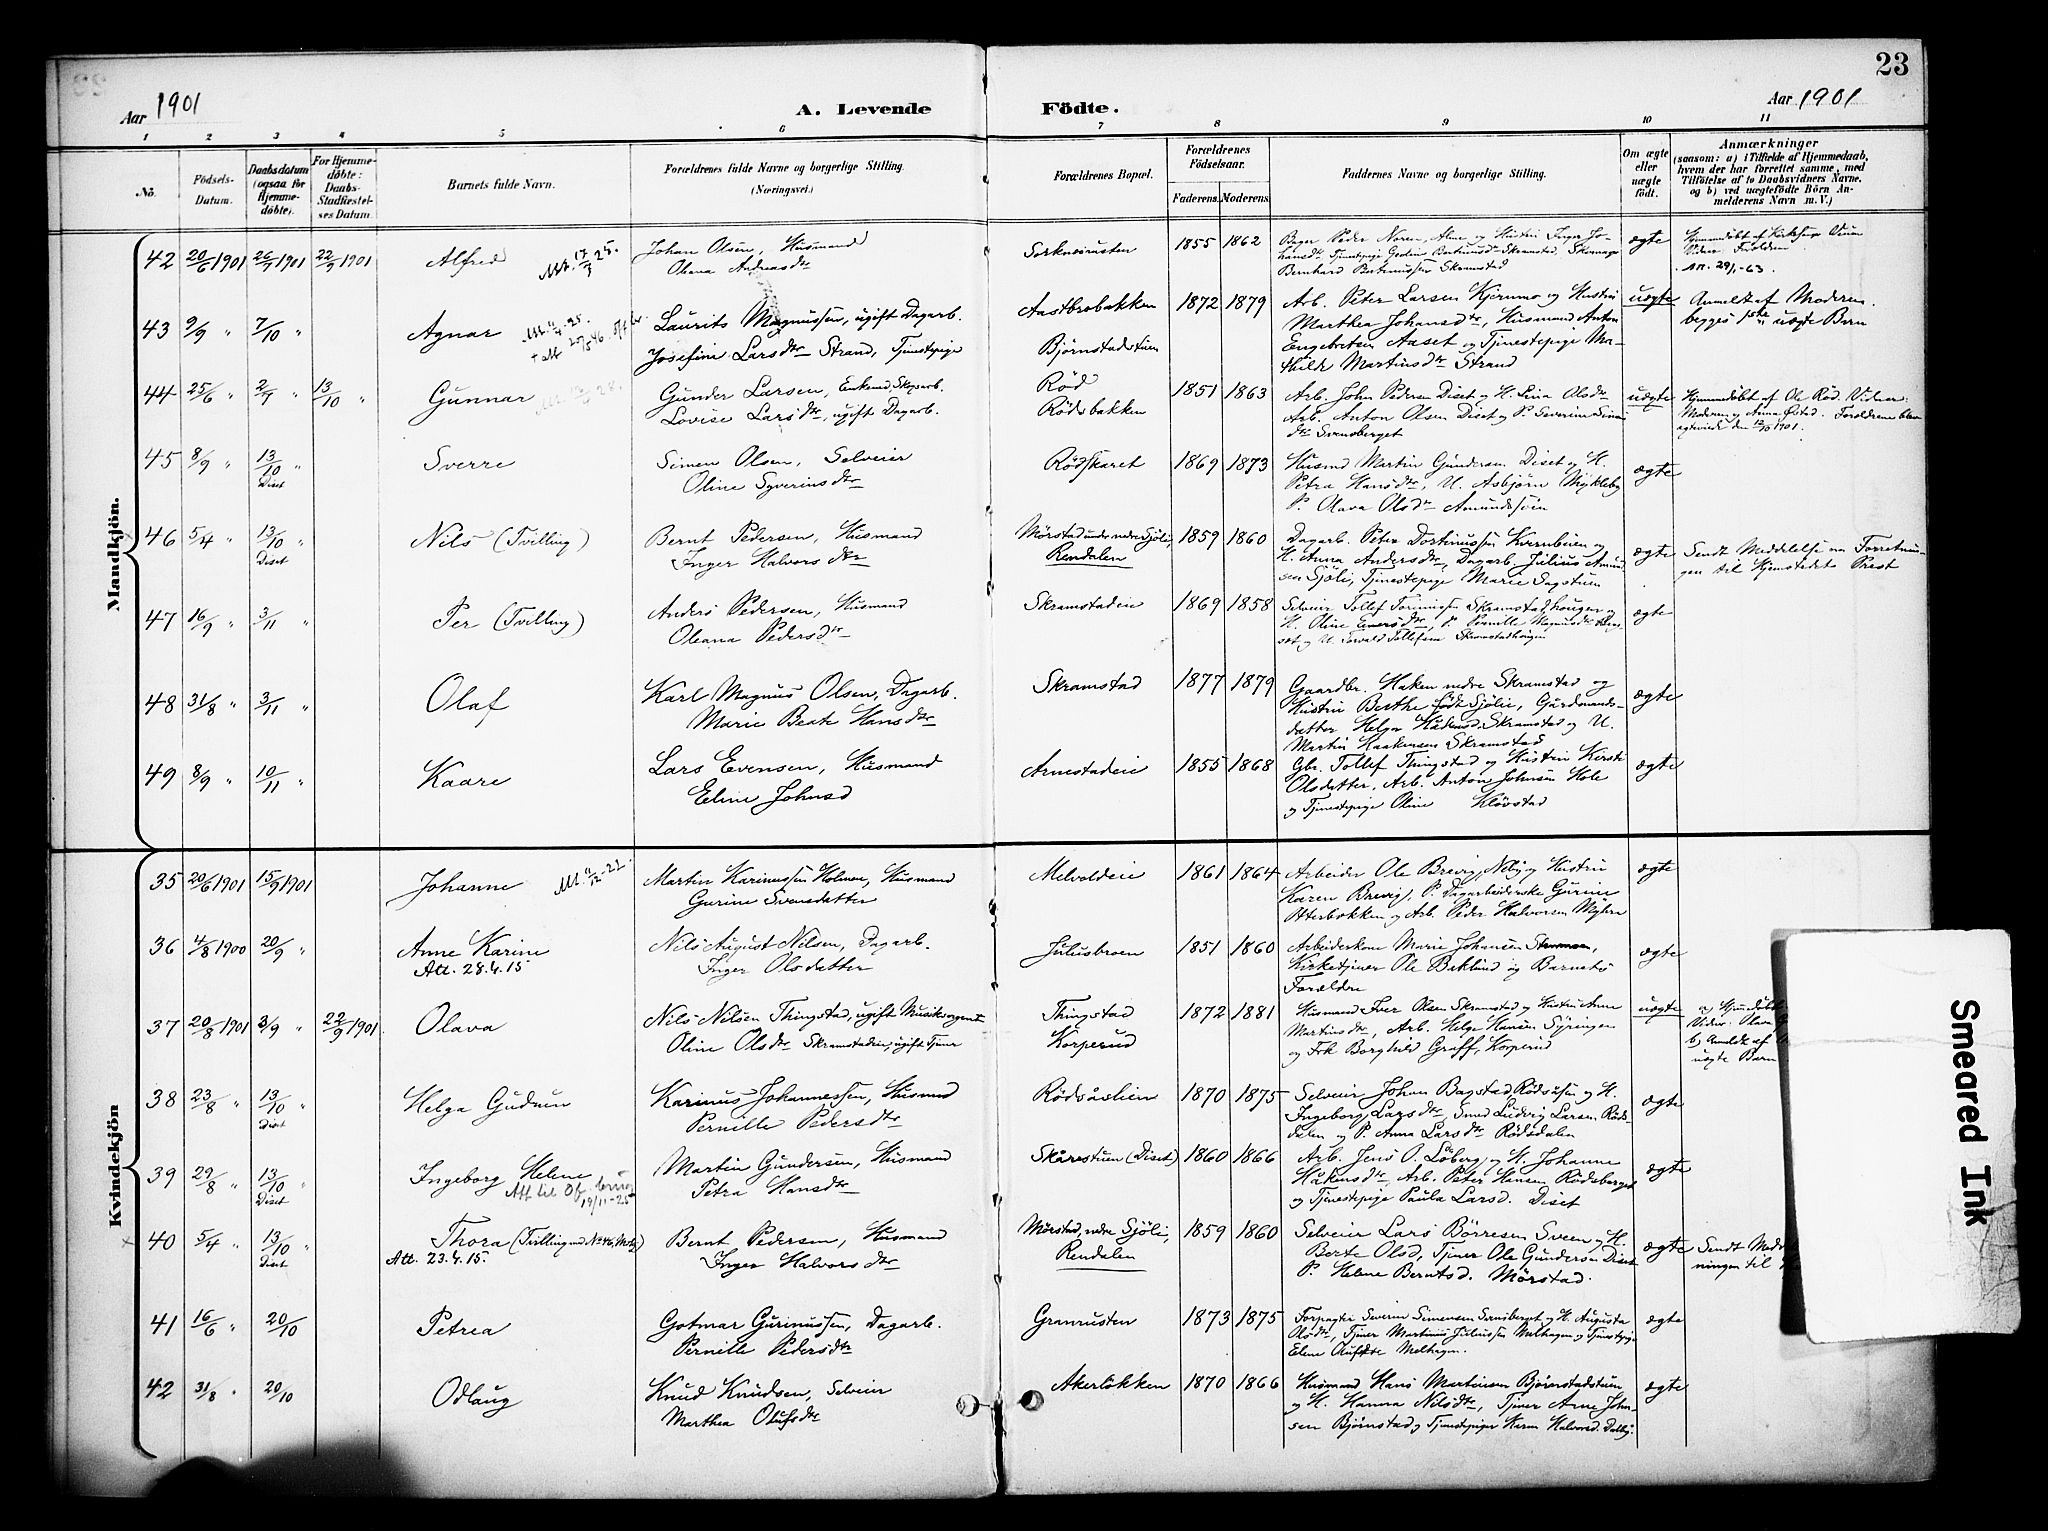 23
Aar 1901
A. Levende Födte.
Aar 1901
1 2 3 4 5 6 7 8 9 10 11
No.
Födsels-Datum.
Daabsdatum (ogsaa for Hjemmedöbte).
For Hjemmedöbte: Daabs-Stadfæstelses Datum.
Barnets fulde Navn.
Forældrenes fulde Navne og borgerlige Stilling.
(Næringsvei.)
Forældrenes Bopæl.
Forældrenes Födselsaar.
Faderens. Moderens.
Faddernes Navne og borgerlige Stilling.
Om ægte eller uægte födt.
Anmærkninger
(saasom: a) i Tilfælde af Hjemmedaab, hvem der har forrettet samme, med Tilföielse af to Daabsvidners Navne, og b) ved uægtefödte Börn Anmelderens Navn m. V.)
Mandkjön.
42 20/6 1901 26/7 1901 22/9 1901 Alfred
Johan Olsen, Husmand
Oleana Andreasdtr
Sorknesrusten 1855 1862
Bernhard Bertinussen Skramstad
ægte
43 9/9 " 7/10 " Agnar
Laurits Magnussen, ugift Dagarb.
Josefine Larsdtr Strand, Tjenestepige
Aastebrobakken
Björnstadstuen
1872 1879
Arb. Peter Larsen Kjernmo og Hustru
Marthea Johansdtr, Husmand Anton
Engebretsen Aaset og Tjenestepige Ma-
thilde Martinsdtr Strand
uægte
Anmeldt af Moderen.
begges 1ste uægte Barn
44 25/6 " 2/7 " 13/10 " Gunnar
Gunder Larsen, Enkemd Skogarb.
Lovise Larsdtr, ugift Dagarb.
Röd
Rödsbakken
1851 1863
Arb. John Pedersen Diset og H. Lina Olsdtr
Arb. Anton Olsen Diset og P. Severine Simens
dtr Svensberget
uægte
Hjemmedöbt af Ole Röd. Vidner:
Moderen og Anna Östad. Forældrene blev
ægteviede den 12/10 1901.
45 8/9 " 13/10 " Diset Sverre
Simen Olsen, Selveier
Oline Syverinsdtr
Rödskaret 1869 1873
Husmd Martin Gundersen Diset og H.
Petra Hansdtr, U. Asbjörn Mykleby
P. Olava Olsdtr Amundsöien
ægte
46 5/4 " 13/10 " Diset Nils (Tvilling)
Bernt Pedersen, Husmand
Inger Halvorsdtr
Mörstad under nedre Sjöli,
Rendalen
1859 1860
H. Anna Andersdtr, Dagarb. Julius Amund
sen Sjöli, Tjenestepige Marie Sagstuen
ægte
Sendt Meddelelse om Forretnin-
gen til Hjemstedets Prest
47 16/9 " 3/11 " Per (Tvilling)
Anders Pedersen, Husmand
Oleana Pedersdtr
Skramstadeie 1869 1858
ægte
48 31/8 " 3/11 " Olaf
Karl Magnus Olsen, Dagarb.
Marie Beate Hansdtr
Skramstad 1877 1879
Gaardbr. Haken nedre Skramstad og
Hustru Berthe född Sjölie, Gårdmands-
datter Helga Håkensd. Skramstad og U.
Martin Haakensen Skramstad
ægte
49 8/9 " 10/11 " Kaare
Lars Evensen, Husmand
Eline Johnsd
Arnestadeie 1855 1868
Gbr. Tollef Thingstad og Hustru Kirsti
Olsdatter, Arb. Anton Johnsen Hole
og Tjenestepige Oline Klövstad
ægte
Kvindekjön
35 20/6 1901 15/9 1901 Johanne
Martin Karinussen Holmen, Husmand
Gurine Svensdatter
Melvoldeie 1861 1864
Arbeider Ole Brevig, Neby og Hustru
Karen Brevig, P. Dagarbeiderske Gurine
Atterbakken og Arb. Peder Halvorsen Myhre
ægte
36 4/8 1900 20/9 " Anne Karine
Att. 28.4.15
Nils August Nilsen, Dagarb.
Inger Olsdatter
Juliusbroen 1851 1860
Arbeiderkone Marie Johansen
Kirketjener Ole Baklund og Barnets
Forældre
ægte
37 20/8 1901 3/9 " 22/9 1901. Olava
Nils Nilsen Thingstad, ugift Musiksergent
Oline Olsdtr Skramstadeie, ugift Tjener
Thingstad
Korperud
1872 1881
Husmand Iver Olsen Skramstad og Hustru Anne
Martinsdtr, Arb. Helge Hansen Syringen
og Frk Borghild Graff, Korperud
uægte
a) Hjemmedöbt
Vidner: Olava
b) Anmeldt af
uægte Barn
38 23/8 " 13/10 " Diset Helga Gudrun
Karinus Johannessen, Husmand
Pernille Pedersdtr
Rödsåslien 1870 1875
Selveier Johan Bagstad, Rödsåsen og H.
Ingeborg Larsdtr, Smed Ludvig Larsen Röds-
dalen og P. Anna Larsdtr Rödsdalen
ægte
39 29/8 " 13/10 Diset Ingeborg Helene
19/11-25
Martin Gundersen, Husmand
Petra Hansdtr
Skårestuen (Diset) 1860 1866
Arb. Jens O. Löberg og H. Johanne
Håkensdtr, Arb. Peter Hansen Rödsberget
og Tjenestepige Paula Larsd. Diset
ægte
40 5/4 " 13/10 " Diset Thora (Tvilling med No 46, Mdkj)
Att. 23.4.15.
Bernt Pedersen, Husmand
Inger Halvorsdtr
Mörstad, nedre Sjöli,
Rendalen
1859 1860
Selveier Lars Börresen Sveen og H.
Berte Olsd, Tjener Ole Gundersen Diset
P. Helene Berntsd. Mörstad.
ægte
Sendt Medd
ningen til
41 16/6 " 20/10 Petrea
Gotmar Gurinussen, Dagarb.
Pernille Pedersdtr
Granrusten 1873 1875
Forpagter Severin Simensen Svensberget og H. Augusta
Olsdtr, Tjener Martinus Juliussen Melhagen og Tjenestepige
Elene Olufsdtr Melhagen.
ægte
42 31/8 " 20/10 Odlaug
Knud Knudsen, Selveier
Marthea Olufsdtr
Akerlökken 1870 1866
Husmand Hans Martinsen Björnstadstuen
og H. Hanna Nilsdtr, Tjener Arne John-
sen Björnstad og Tjenestepige Karen Halvorsd. Dalby.
ægte
Smeared Ink